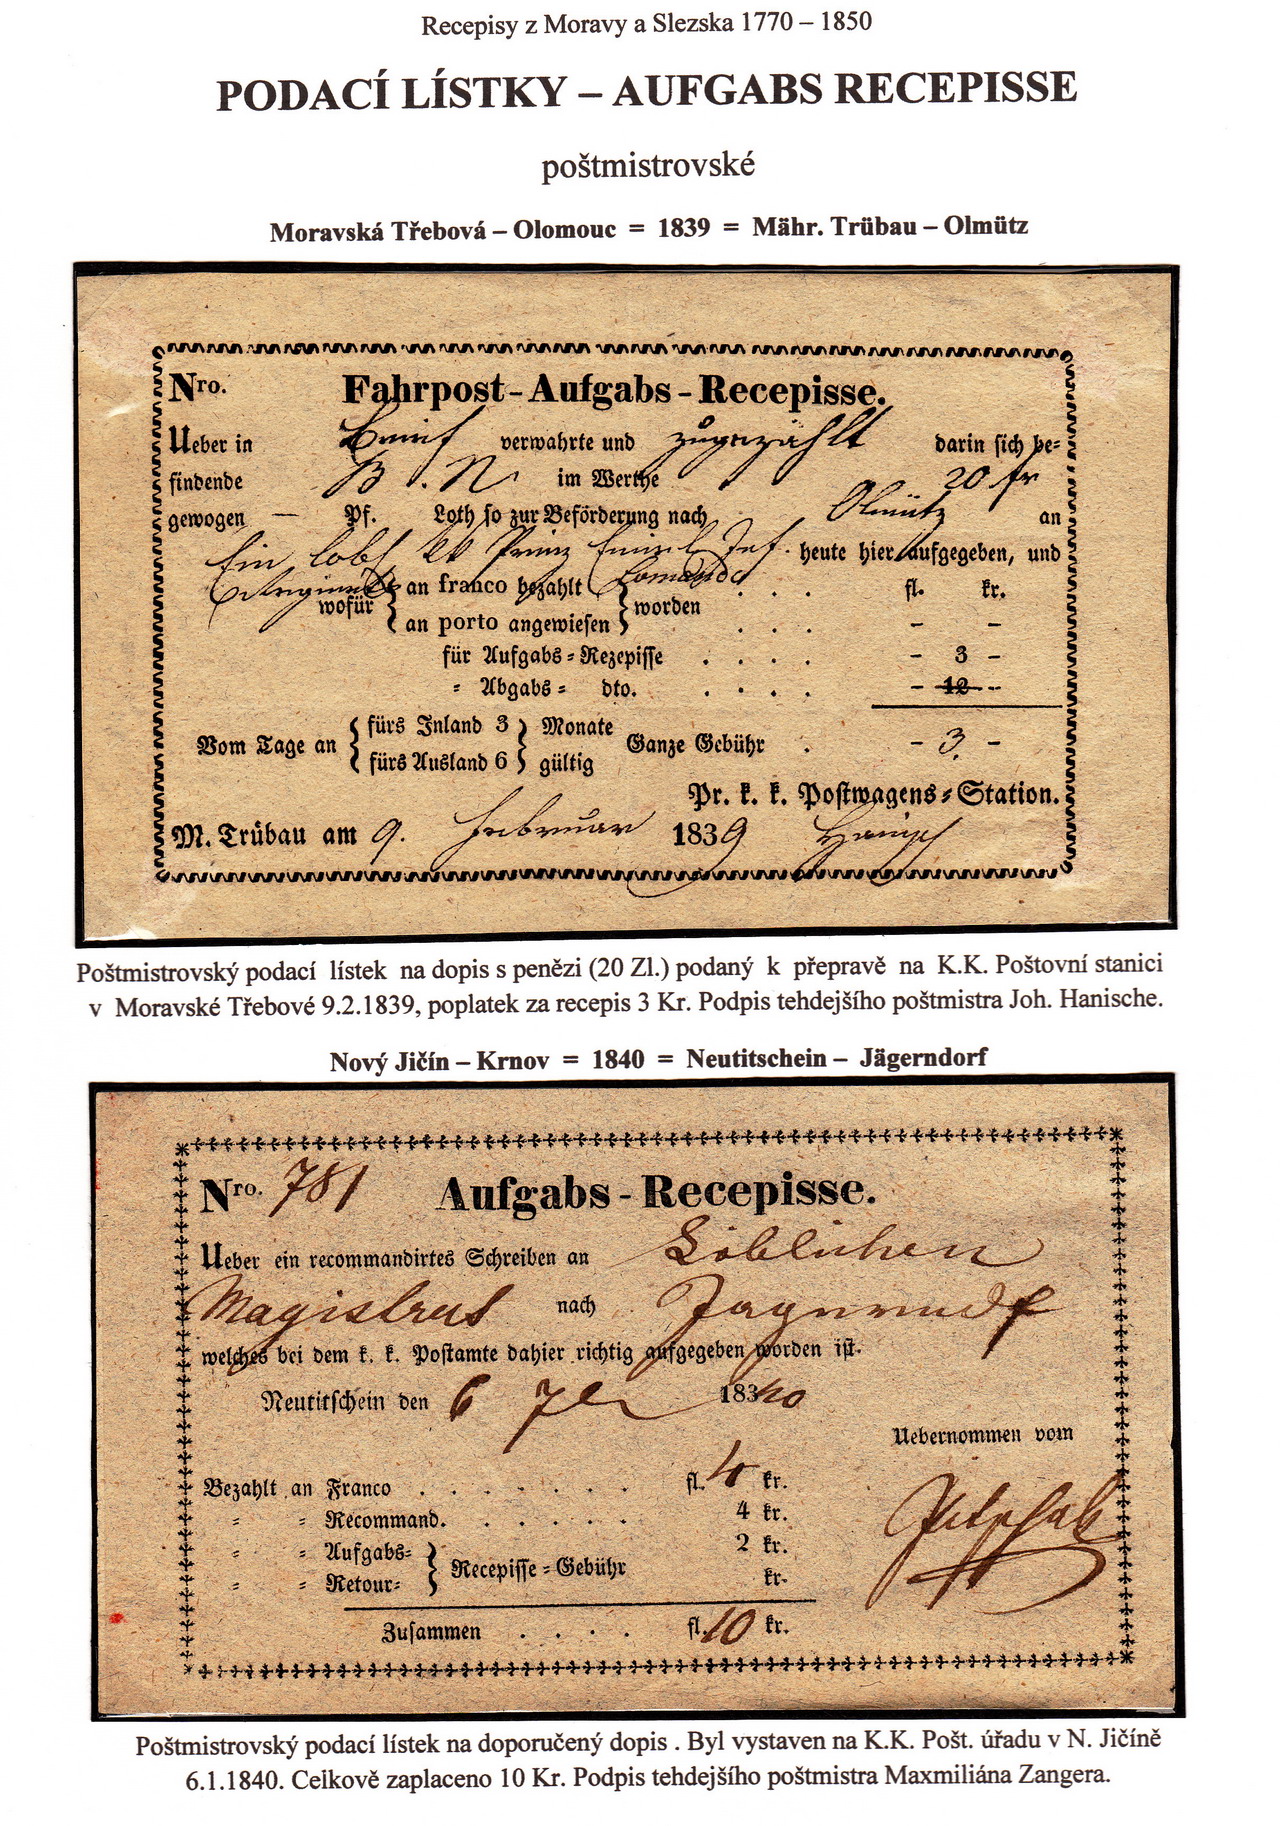 Recepisy z Moravy a Slezska 1770 – 1850
PODACÍ LÍSTKY – AUFGABS RECEPISSE
poštmistrovské
Moravská Třebová – Olomouc = 1839 = Mähr. Trübau – Olmütz
Nro. Fahrpost-Aufgabs-Recepisse.
Ueber in verwahrte und zugezählt darin sich be=
findende B. N. im Werthe 20 fr
gewogen — Pf. Loth so zur Beförderung nach Olmütz an
Ein löbl kk Prinz Emil Inf. heute hier aufgegeben, und
wofür { an franco bezahlt } worden . . . fl. kr.
an porto angewiesen . . . – –
für Aufgabs=Rezepisse . . . . – 3 –
= Abgabs= dto. . . . . – 12 – –
Vom Tage an { fürs Inland 3 } Monate
fürs Ausland 6 gültig Ganze Gebühr . – 3. –
Pr. k. k. Postwagens=Station.
M. Trübau am 9. Februar 1839
Poštmistrovský podací lístek na dopis s penězi (20 Zl.) podaný k přepravě na K.K. Poštovní stanici
v Moravské Třebové 9.2.1839, poplatek za recepis 3 Kr. Podpis tehdejšího poštmistra Joh. Hanische.
Nový Jičín – Krnov = 1840 = Neutitschein – Jägerndorf
Nro. 781 Aufgabs-Recepisse.
Ueber ein recommandirtes Schreiben an Löblichen
Magistrat nach Jägerndf
welches bei dem k. k. Postamte dahier richtig aufgegeben worden ist.
Neutitschein den 6 18340
Uebernommen vom
Bezahlt an Franco . . . . . . . fl. 4 kr.
= = Recommand. . . . . . 4 kr.
= = Aufgabs= } Recepisse=Gebühr 2 kr.
= = Retour= kr.
Zusammen . . . . fl. 10 kr.
Poštmistrovský podací lístek na doporučený dopis . Byl vystaven na K.K. Pošt. úřadu v N. Jičíně
6.1.1840. Celkově zaplaceno 10 Kr. Podpis tehdejšího poštmistra Maxmiliána Zangera.